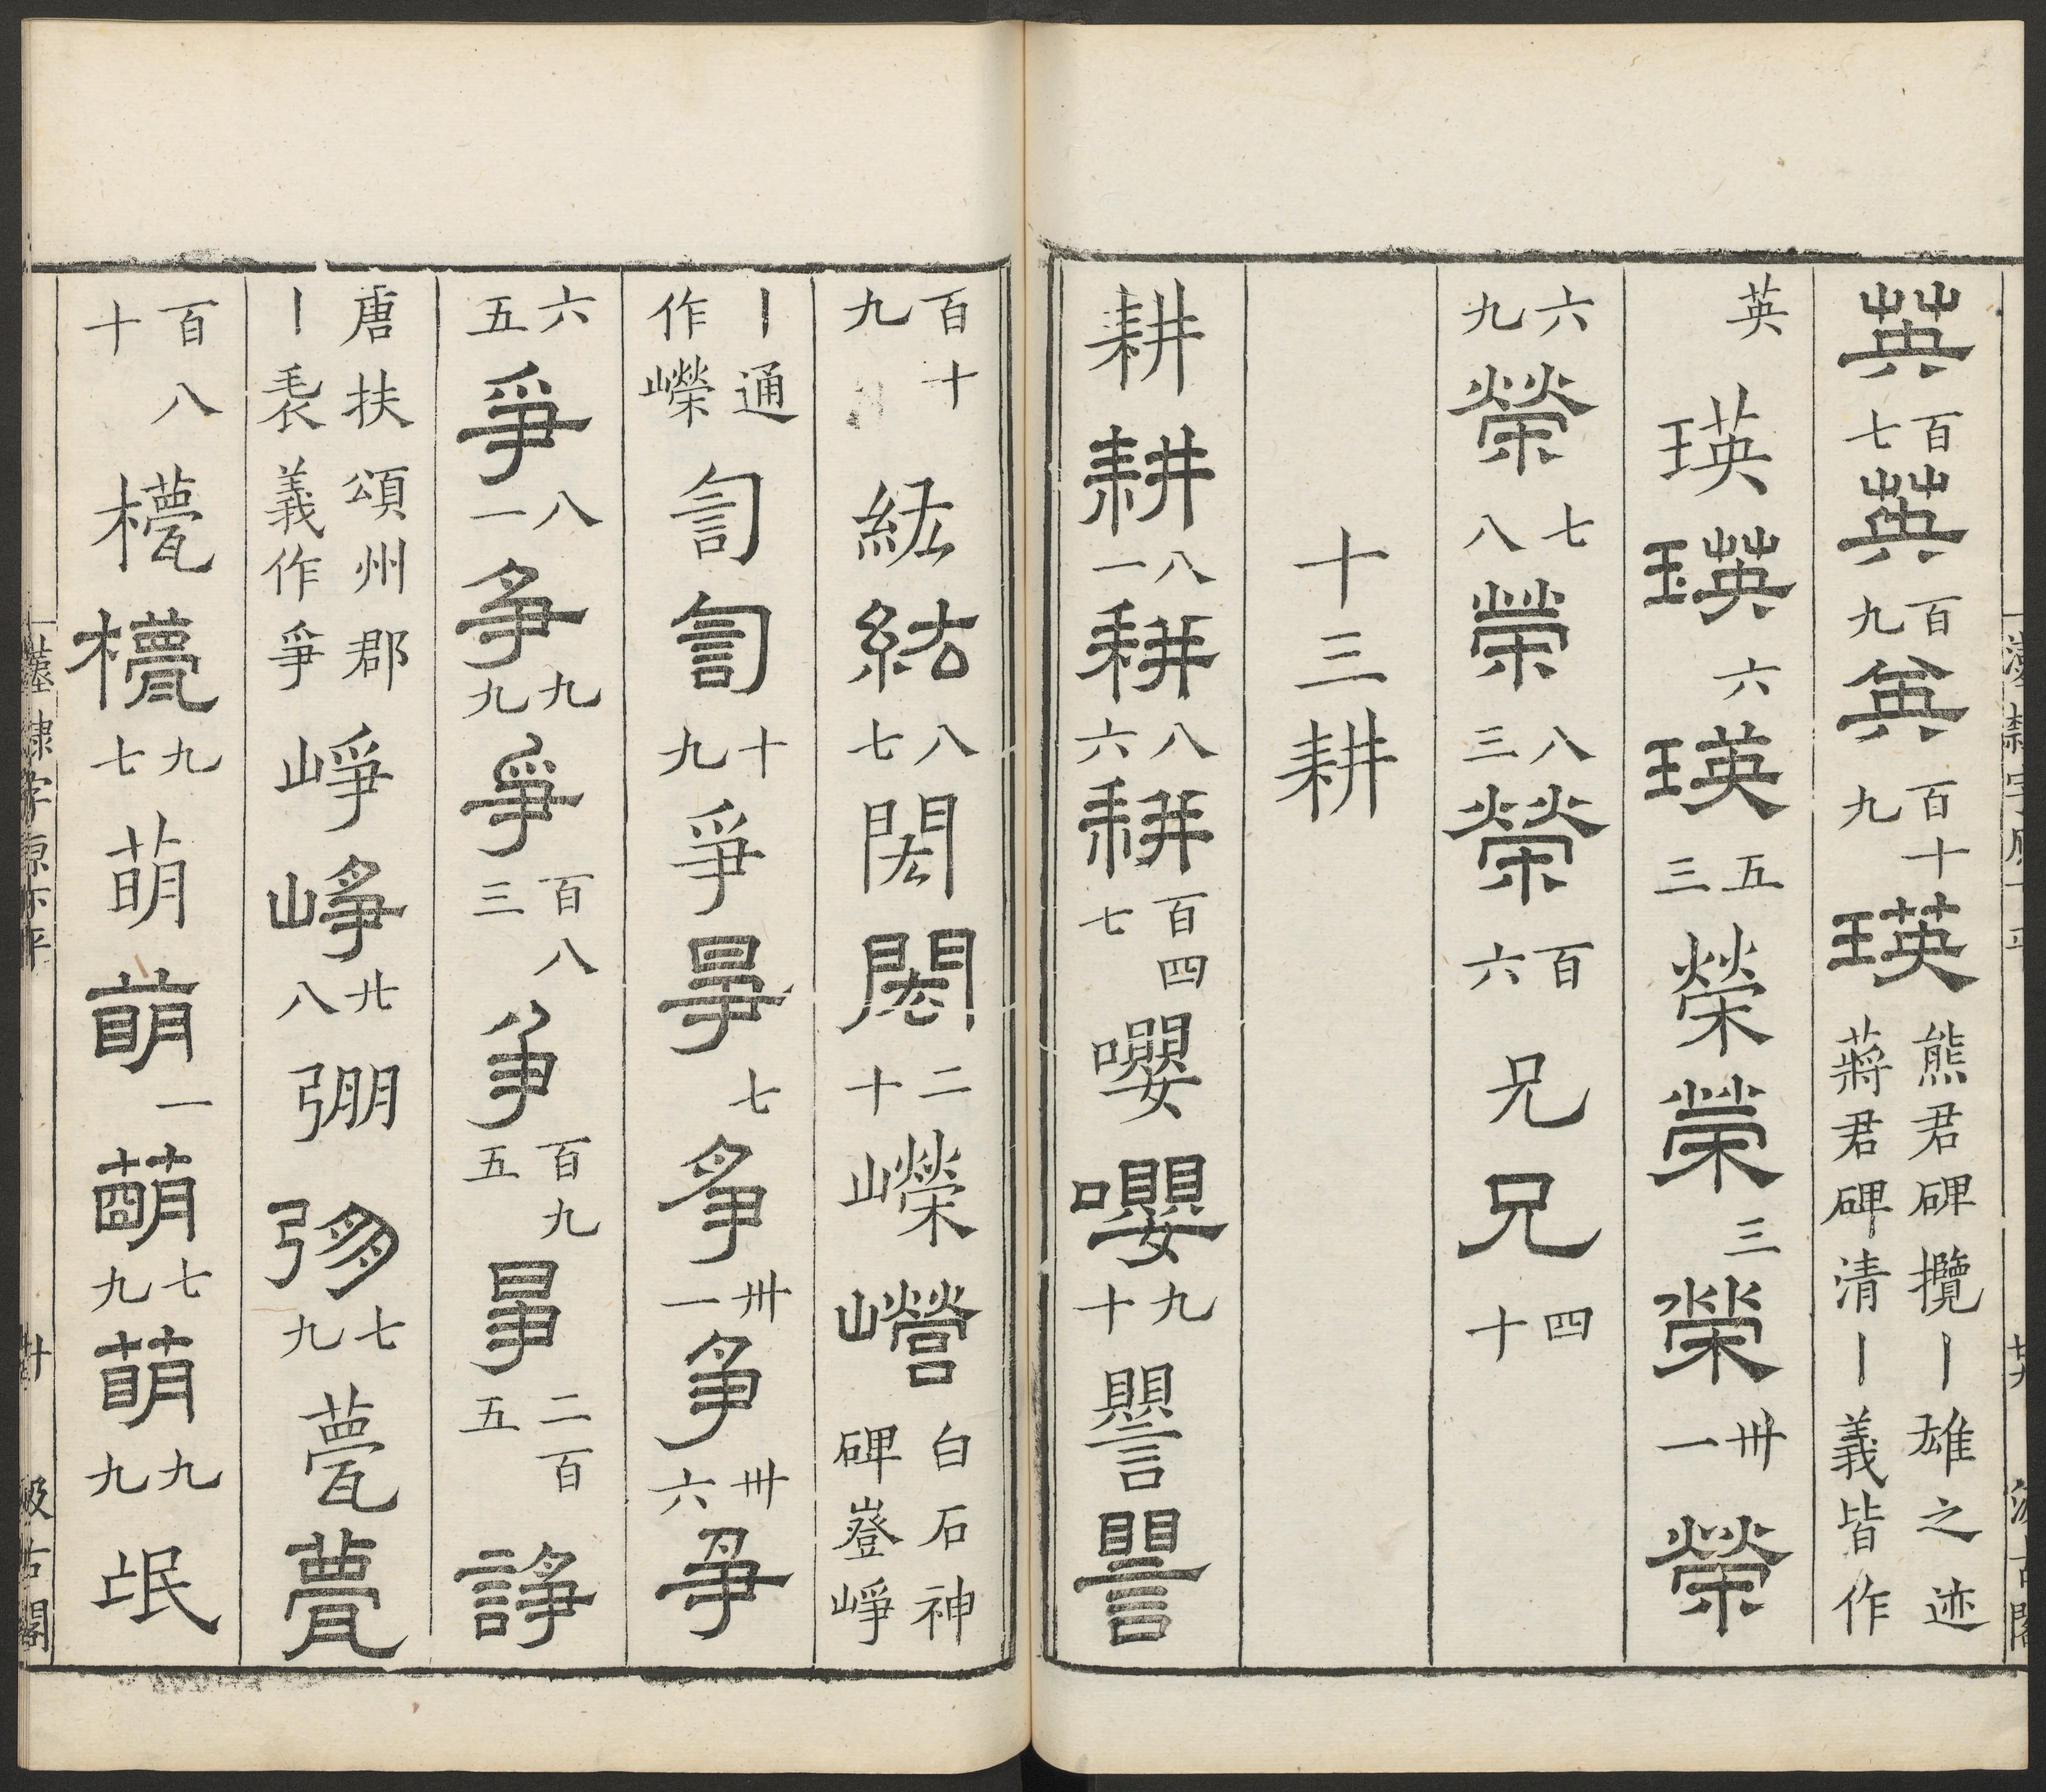 英百七英百九英百十九瑛熊君碑攬丨雄之迹蔣君碑清丨義皆作
英瑛瑛六瑛五三榮榮三榮卅一榮
六九榮七八榮八三榮百六兄兄四十
十三耕
耕耕八一耕八六耕百四七嚶嚶九十譻譻
百十九紘紘八七閎閎二十嶸嶸白石神碑嶝崢
丨通作嶸訇訇十九爭爭七爭卅一爭卅六爭
六五爭八一爭九九爭百八三爭百九五爭二百五諍
唐扶頌州郡丨袠義作爭崢崢廿八弸弸七九甍甍
百八十九七萌萌一萌七九萌九九氓
漢隸字源下平 卅 汲古閣